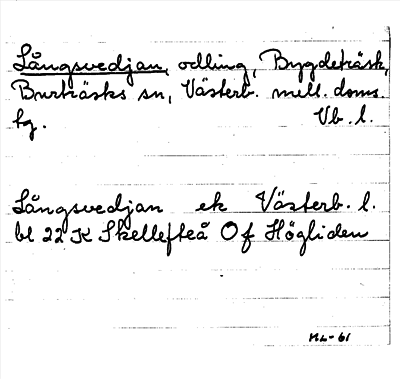 Långsvedjan, odling, Bygdeträsk,
Burträsks sn, Västerb. mell. doms.
hg. Vb. l.
Långsvedjan ek Västerb. l.
bl 22 K Skellefteå Of Högliden
ML-61